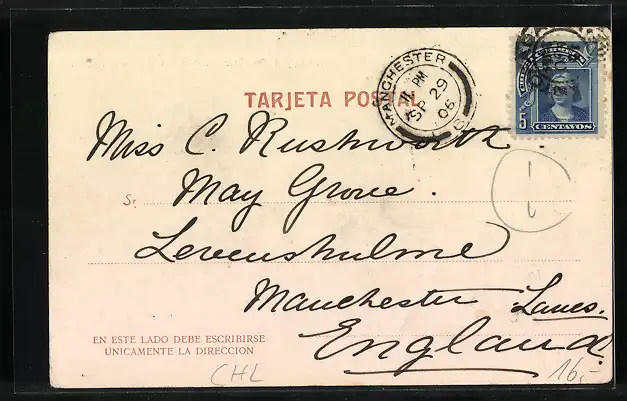 TARJETA POSTAL
MANCHESTER
PM
SP 29
06
5
CENTAVOS
Miss C. Rushworth
Sr.
May Grove.
Levenshulme
Manchester Lancs.
England.
EN ESTE LADO DEBE ESCRIBIRSE
ÚNICAMENTE LA DIRECCION
CHL
16,-